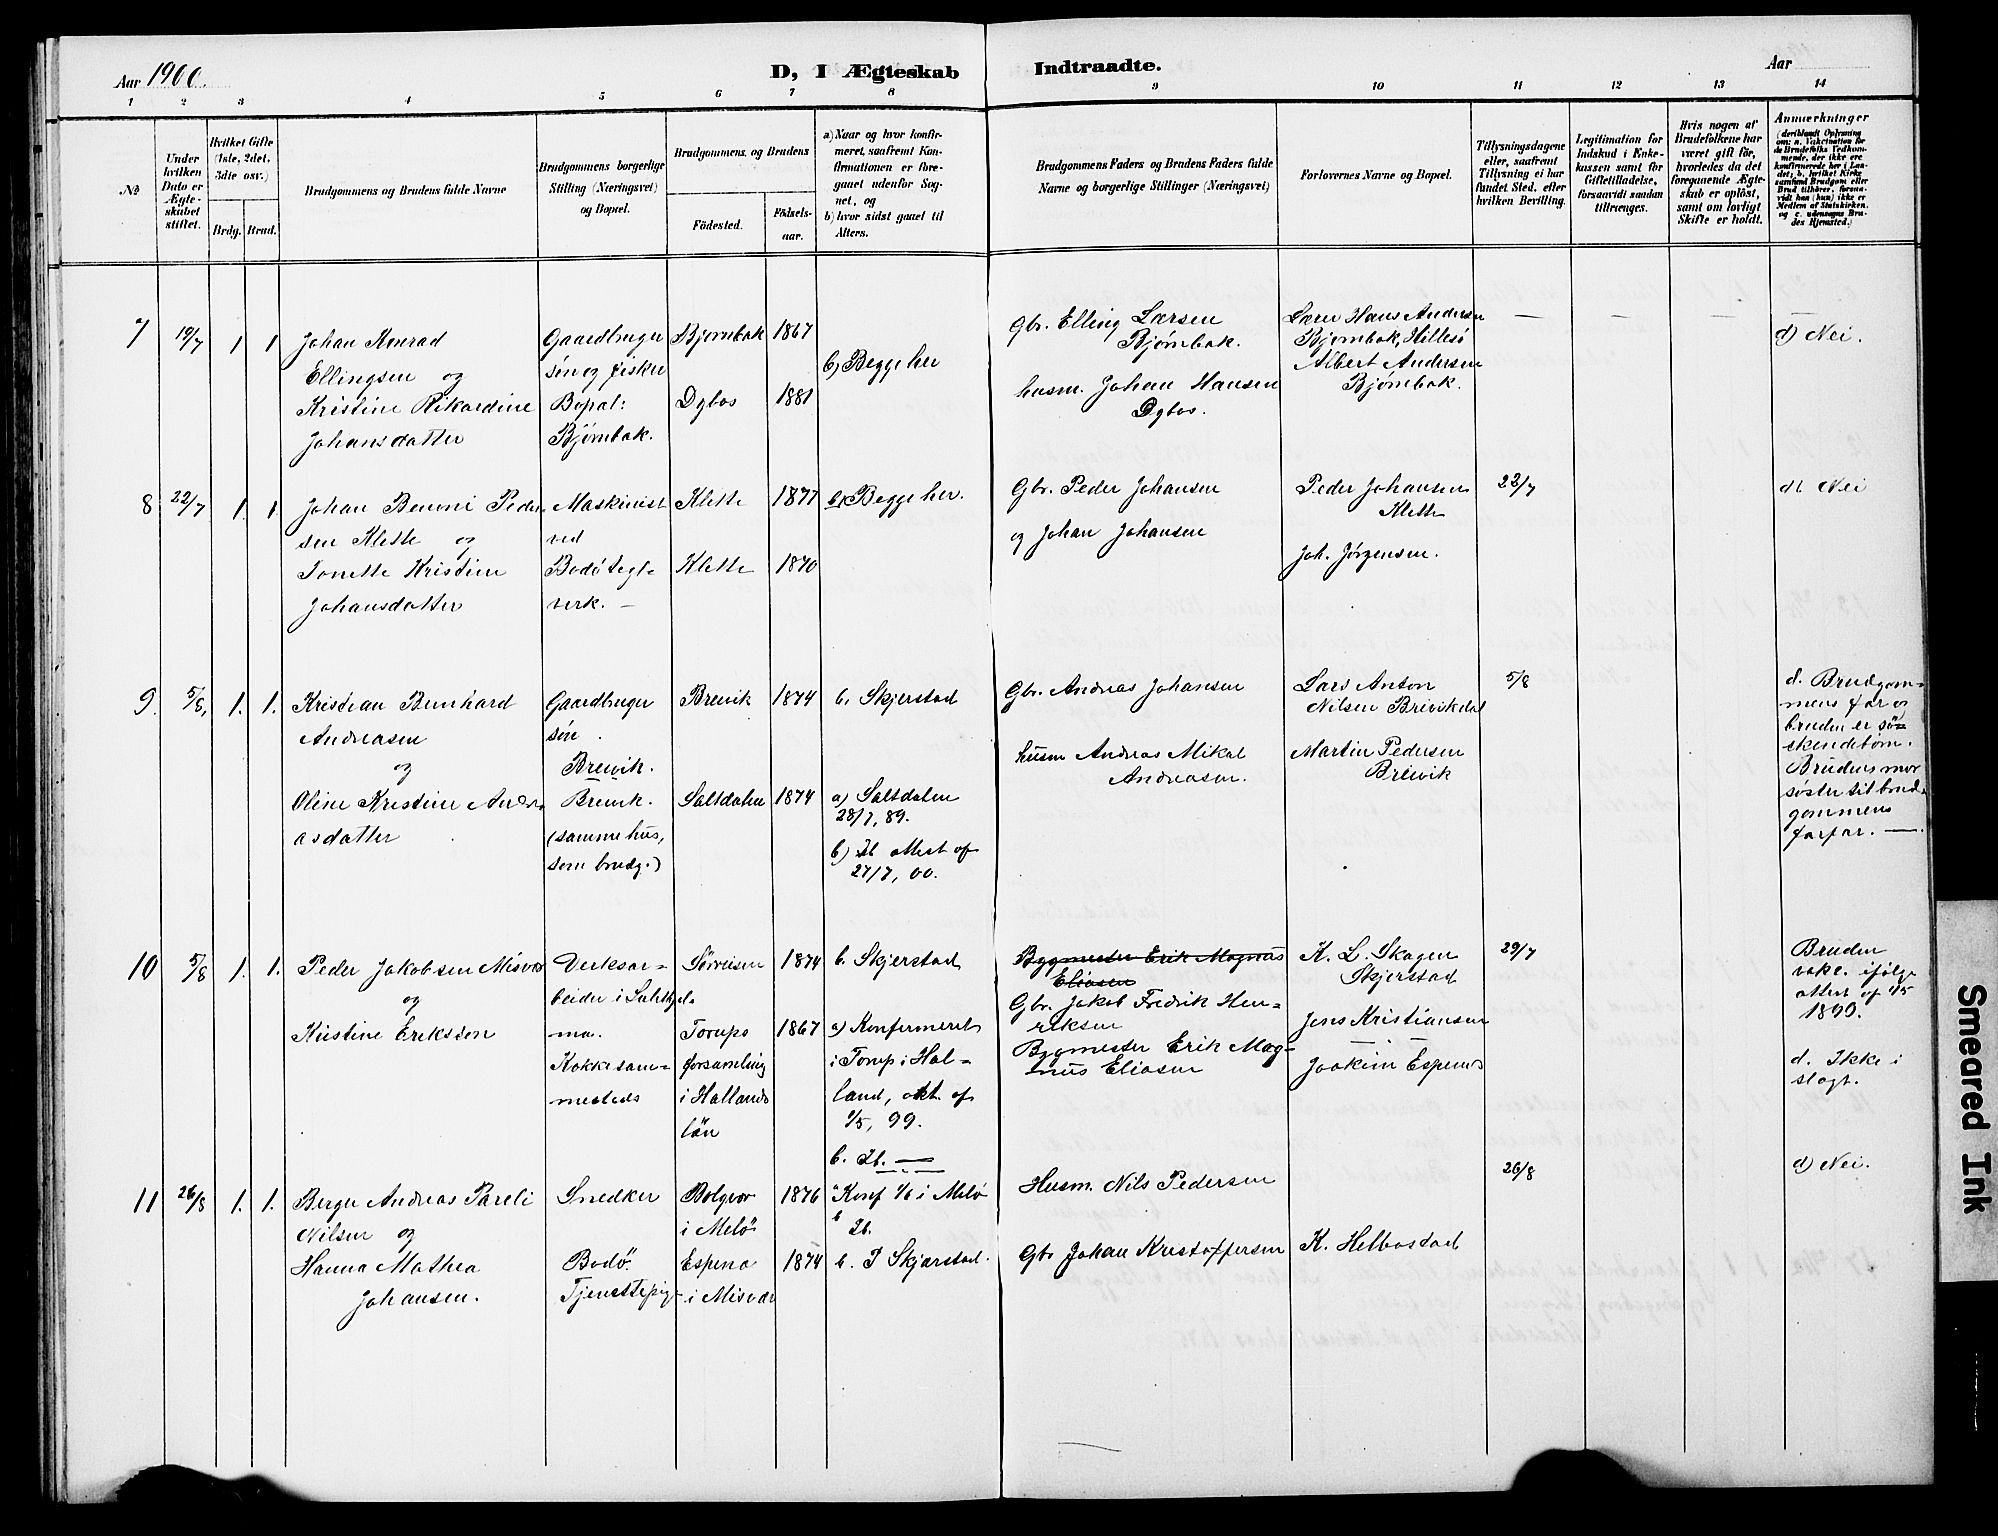 Aar 1900.
D, I Ægteskab Indtraadte.
Aar
1 2 3 4 5 6 7 8 9 10 11 12 13 14
No
Under hvilken Dato er Ægteskabet stiftet.
Hvilket Gifte (1ste, 2det, 3die osv.)
Brdg. Brud.
Brudgommens og Brudens fulde Navne
Brudgommens borgerlige Stilling (Næringsvei) og Bopæl.
Brudgommens og Brudens
Födested.
Födselsaar.
a) Naar og hvor konfirmeret, saafremt Konfirmationen er foregaaet udenfor Sognet, og
b) hvor sidst gaaet til Alters.
Brudgommens Faders og Brudens Faders fulde Navne og borgerlige Stillinger (Næringsvei)
Forlovernes Navne og Bopæl.
Tillysningsdagene eller, saafremt Tillysning ei har fundet Sted, efter hvilken Bevilling.
Legitimation for Indskud i Enkekassen samt for Giftetilladelse, forsaavidt saadan tiltrænges.
Hvis nogen af Brudefolkene har været gift för, hvorledes da det foregaaende Ægteskab er oplöst, samt om lovligt Skifte er holdt.
Anmærkninger
(deriblandt Oplysning om: a. Vakcination for de Brudefolks Vedkommende, der ikke ere konfirmerede her i Landet; b. hvilket Kirkesamfund Brudgom eller Brud tilhörer, forsaavidt han (hun) ikke er Medlem af Statskirken, og c. udensogns Brudes Hjemsted.)
7 19/7 1 1
Johan Konrad
Ellingsen og
Kristine Rikardine
Johansdatter
Gaardbruger
søn og fisker
Bopæl:
Bjørnbak.
Bjørnbak 1867
Dybos 1881
b) Begge her
Gbr. Elling Larsen
Bjørnbak.
husm. Johan Hansen
Dybos.
Lærer Hans Andersen
Bjørnbak, Hillesø
Albert Andersen
Bjørnbak.
— — —
d) Nei.
8 22/7 1. 1.
Johan Benoni Peder-
sen Klette og
Tonette Kristine
Johansdatter
Maskinist
ved
Bodö tegl-
verk. —
Klette 1877
Klette 1870
b) Begge her.
Gbr. Peder Johansen
og Johan Johansen
Peder Johansen
Klette
Joh. Jørgensen.
22/7
d) Nei
9 5/8, 1. 1.
Kristian Bernhard
Andreasen
og
Oline Kristine Andre
asdatter
Gaardbruger
søn.
Breivik.
Breivik.
(samme hus,
som brudg.)
Breivik 1874
Saltdalen 1874
b. Skjerstad
a) Saltdalen
28/7, 89.
b) Ib attest af
27/7, 00.
Gbr. Andreas Johansen
husm Andreas Mikal
Andreasen.
Lars Anton
Nilsen Breivikdal
Martin Pedersen
Breivik
5/8
d. Brudgom-
mens far og
bruden er sö-
skendebörn.
Brudens mor
söster til brud-
gommens
farfar. —
10 5/8 1. 1.
Peder Jakobsen Misvær
og
Kristine Eriksson
Verksar-
beider i Sulitjel-
ma.
Kokke sam-
mesteds
Sørreisen 1874
Torups 1867
forsamling
i Hallands
län
b. Skjerstad
a) Konfirmeret
i Torup i Hal-
land, att. af
1/5, 99.
b. Ib. —
Bygmester Erik Magnus
Eliasen
Gbr. Jakob Fredrik Hen-
riksen
Bygmester Erik Mag-
nus Eliasen
K. L. Skagen
Skjerstad
Jens Kristiansen
—
Joakim Espenes
29/7
Bruden
vakc. ifølge
attest af 1/5
1899.
d. Ikke i
slægt.
11 26/8 1. 1.
Berger Andreas Pareli
Nilsen og
Hanna Mathea
Johansen.
Snedker
Bodö.
Tjenestepige
Bolgvær 1876
i Melö
Espenes 1874
i Misvær
a Konf 1/6 i Melö
b Ib.
b. I Skjærstad.
Husm. Nils Pedersen
Gbr Johan Kristoffersen
K. Helbostad
26/8
d) Nei.
Smeared Ink